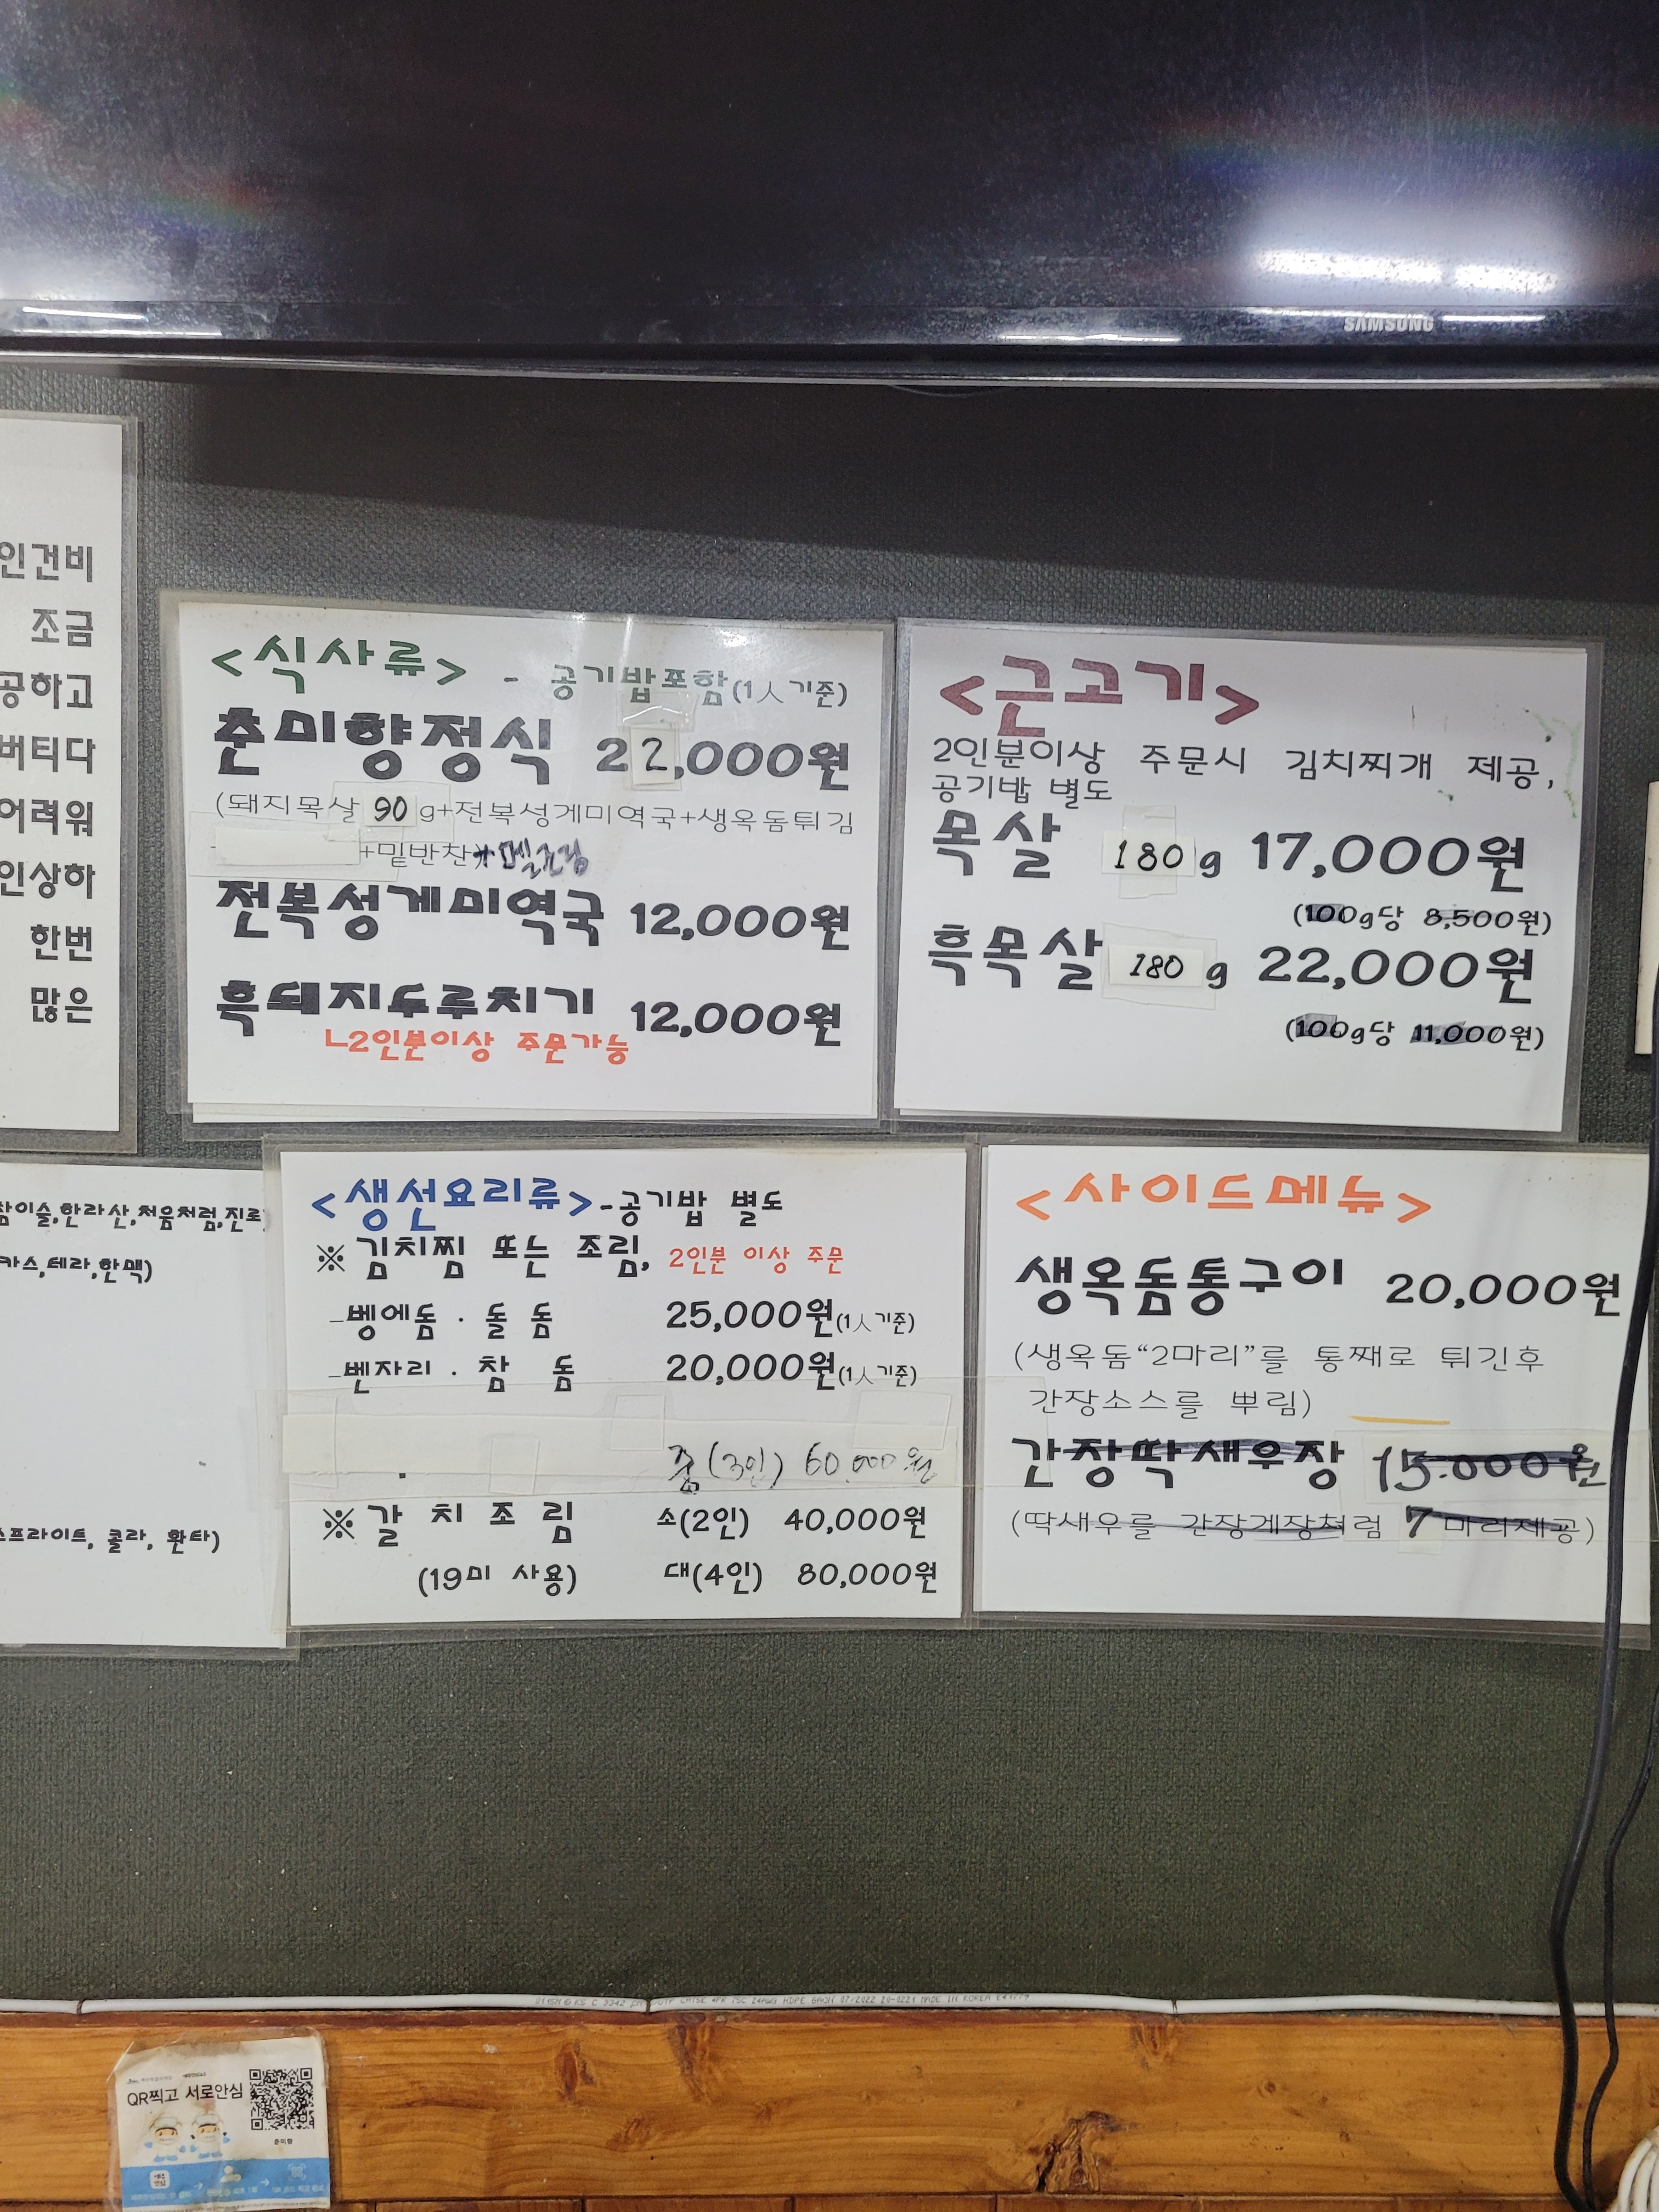 SAMSUNG
인건비
조금
공하고
버티다
어려워
인상하
한번
많은
<식사류> - 공기밥포함(1人기준)
춘미향정식 22,000원
(돼지목살 90g+전복성게미역국+생옥돔튀김
+밑반찬+멜조림
전복성게미역국 12,000원
흑돼지두루치기 12,000원
ㄴ2인분이상 주문가능
<근고기>
2인분이상 주문시 김치찌개 제공,
공기밥 별도
목살 180g 17,000원
(100g당 8,500원)
흑목살 180g 22,000원
(100g당 11,000원)
참이슬,한라산,처음처럼,진로
카스,테라,한맥)
스프라이트, 콜라, 환타)
<생선요리류>-공기밥 별도
※김치찜 또는 조림, 2인분 이상 주문
-벵에돔 · 돌돔 25,000원(1人기준)
-벤자리 · 참돔 20,000원(1人기준)
중(3인) 60,000원
※갈치조림 소(2인) 40,000원
(19미 사용) 대(4인) 80,000원
<사이드메뉴>
생옥돔통구이 20,000원
(생옥돔“2마리”를 통째로 튀긴후
간장소스를 뿌림)
간장딱새우장 15,000원
(딱새우를 간장게장처럼 7마리제공)
QR찍고 서로안심
춘미향